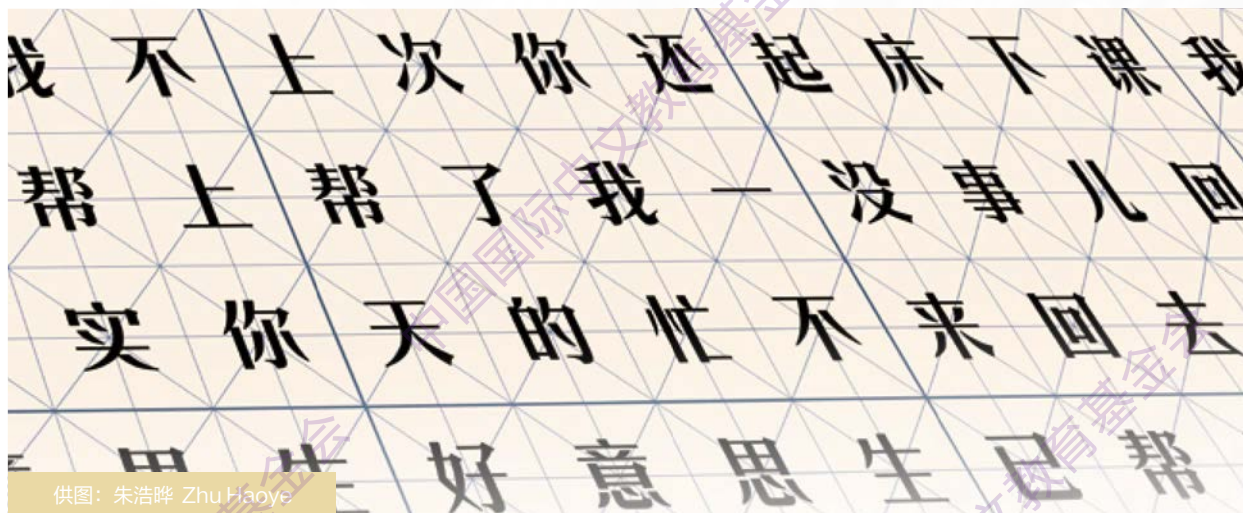 我不上次你还起床下课我
帮上帮了我一没事儿回
实你天的忙不来回去
思生好意思生已帮
供图：朱浩晔 Zhu Haoye
中国国际中文教育基金会